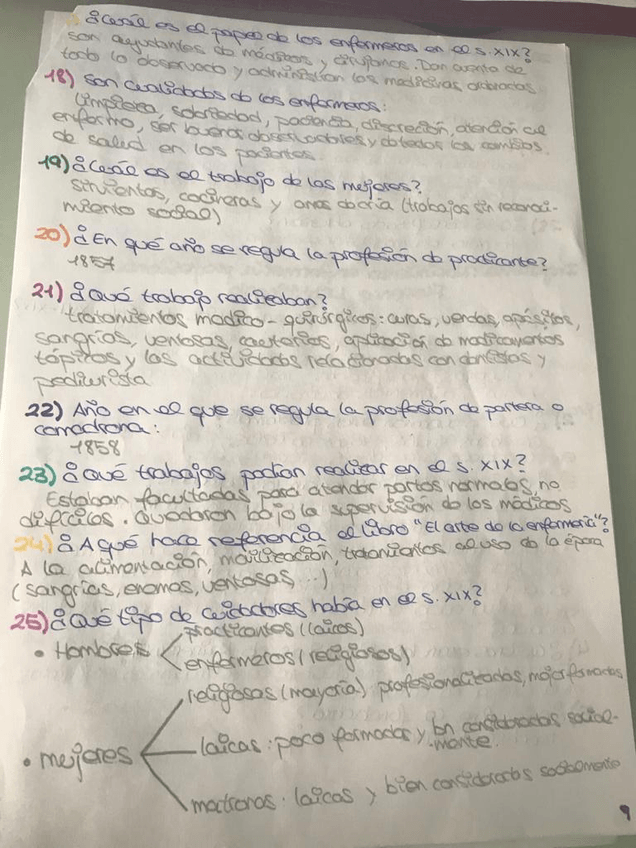 ¿Cuál es el papel de los enfermeros en el s. XIX?
son ayudantes de médicos y cirujanos. Dan cuenta de
todo lo observado y administran las medicinas ordenadas
18) Son cualidades de los enfermeros:
Limpieza, sobriedad, paciencia, discreción, atención al
enfermo, ser buenos observadores y de todos los cambios
de salud en los pacientes.
19) ¿Cuál es el trabajo de las mujeres?
Sirvientas, cocineras y amas de cría (trabajos sin reconoci-
miento social)
20) ¿En qué año se regula la profesión de practicante?
1857
21) ¿Qué trabajo realizaban?
tratamientos médico-quirúrgicos: curas, vendas, apósitos,
sangrías, ventosas, cauterios, aplicación de medicamentos
tópicos y las actividades relacionadas con dentistas y
pedicurista
22) Año en el que se regula la profesión de partera o
comadrona:
1858
23) ¿Qué trabajos podían realizar en el s. XIX?
Estaban facultadas para atender partos normales, no
difíciles. Quedaron bajo la supervisión de los médicos
24) ¿A qué hace referencia el libro "El arte de la enfermería"?
A la alimentación, movilización, tratamientos al uso de la época
(sangrías, enemas, ventosas, ...)
25) ¿Qué tipo de cuidadores había en el s. XIX?
• Hombres
practicantes (laicos)
enfermeros (religiosos)
• mujeres
religiosas (mayoría) profesionalizadas, mejor formadas
laicas: poco formadas y bn consideradas social-
mente.
matronas: laicas y bien consideradas socialmente
9